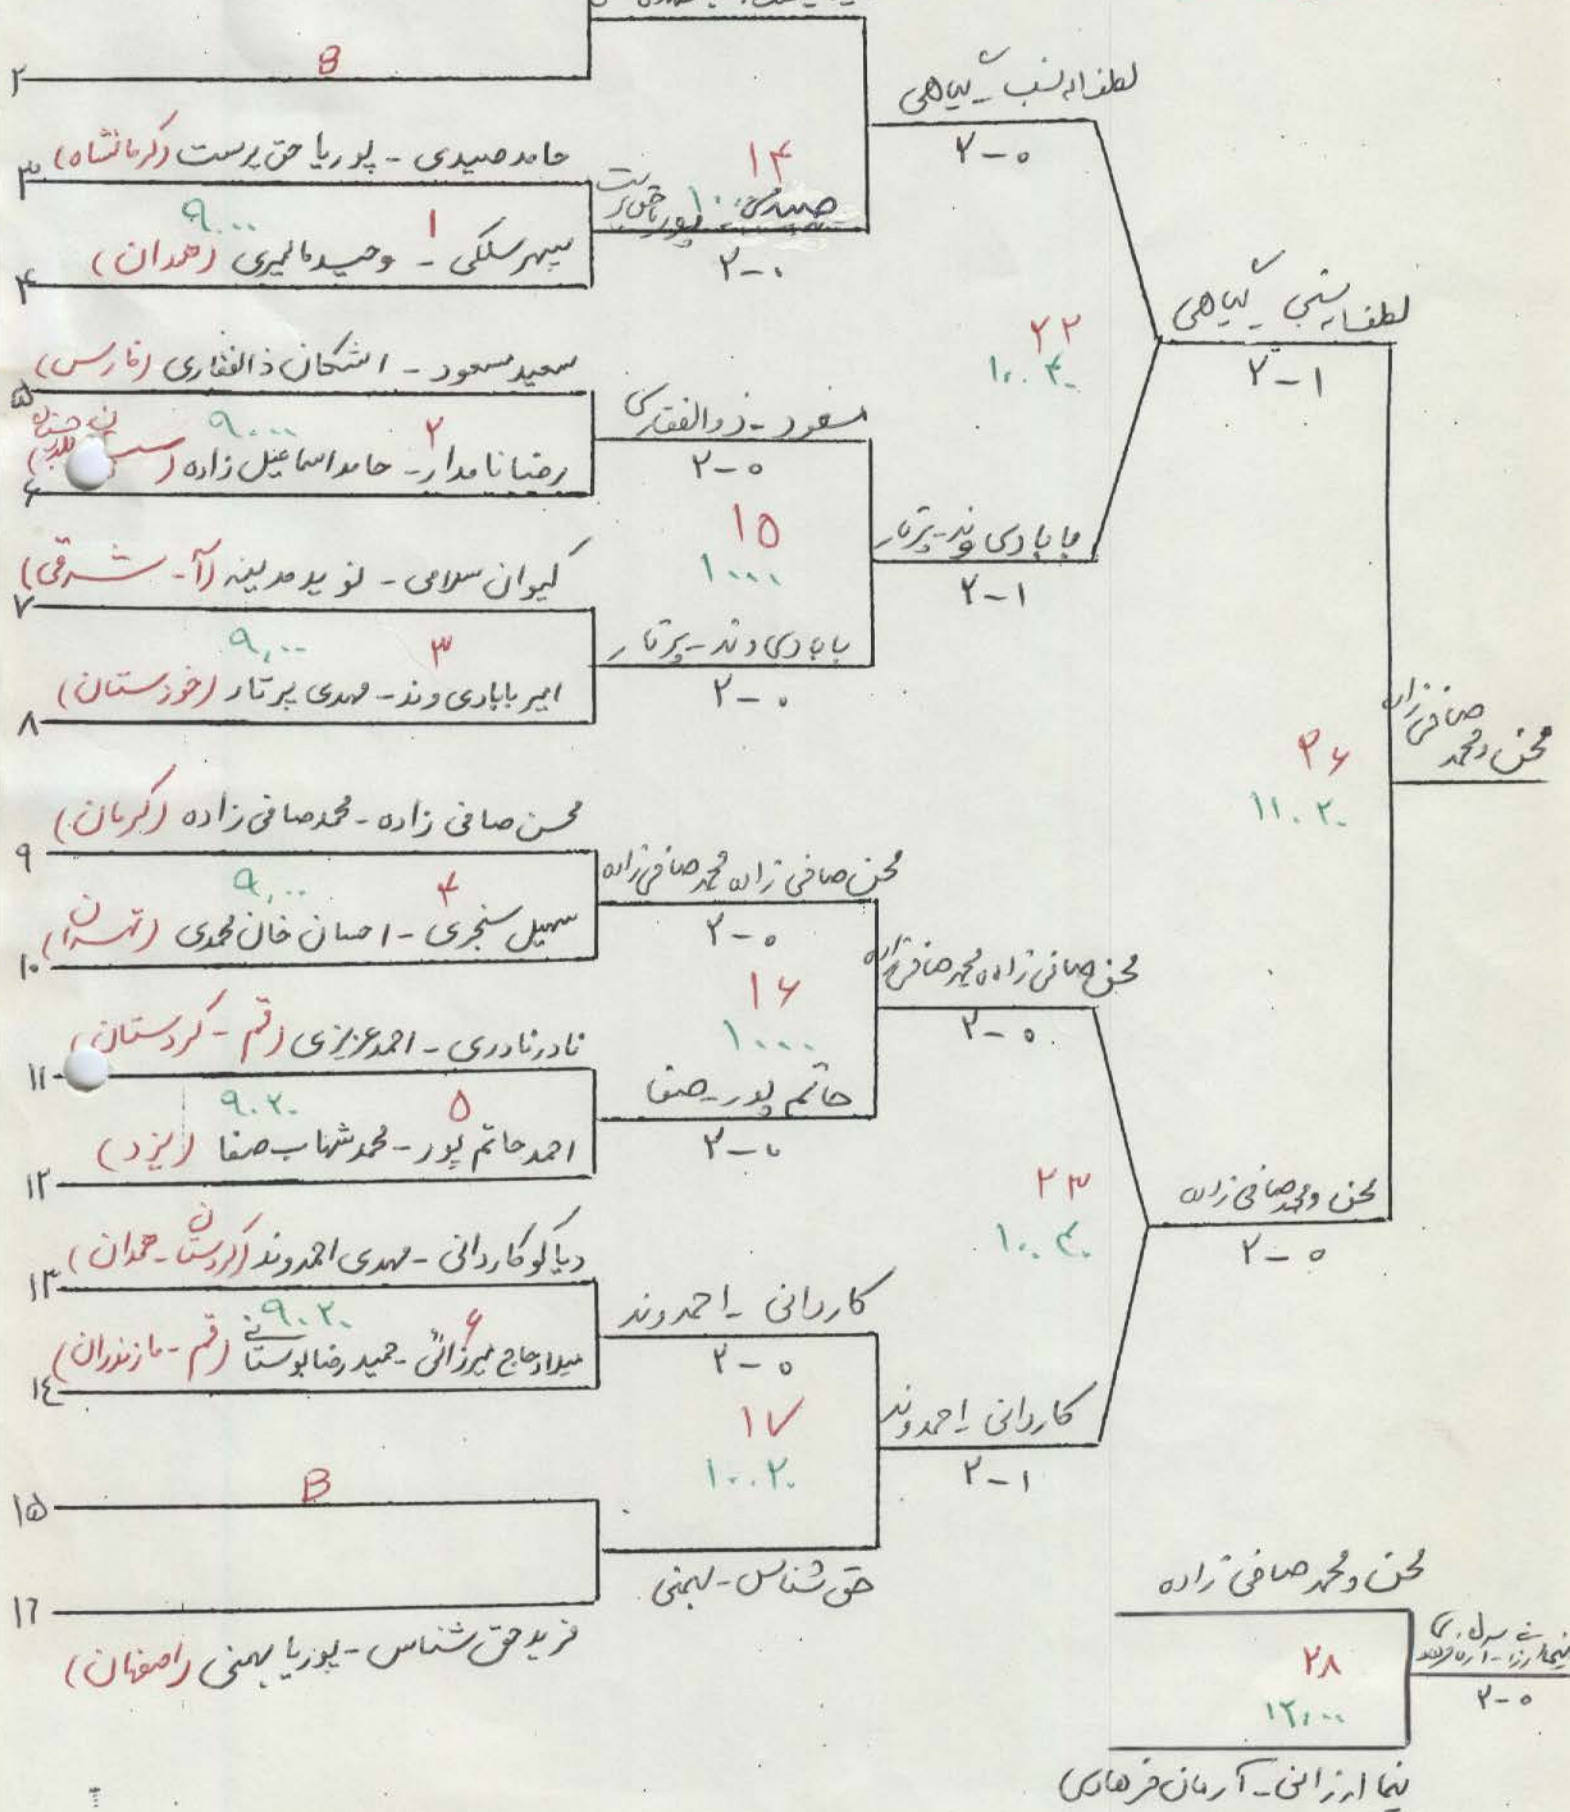 ۲ B
۳ حامد صیدی - پوریا حق پرست (کرمانشاه)
۹۰۰۰ ۱
۴ سپهر سلگی - وحید مالمیری (همدان)
۵ سعید مسعود - اشکان ذالفقاری (فارس)
۹۰۰۰ ۲
۶ رضا نامدار - حامد اسماعیل زاده
۷ کیوان سلامی - نوید مدینه (آ- شرقی)
۹,۰۰ ۳
۸ امیر بابادی وند - مهدی پرتار (خوزستان)
۹ محسن صافی زاده - محمد صافی زاده (کرمان)
۹,۰۰ ۴
۱۰ سهیل سنجری - احسان خان محمدی (تهران)
۱۱ نادر نادری - احمد عزیزی (قم - کردستان)
۹.۲۰ ۵
۱۲ احمد حاتم پور - محمد شهاب صفا (یزد)
۱۳ دیاکو کاردانی - مهدی احمدوند (کردستان - همدان)
۹.۲۰ ۶
۱۴ میلاد حاج میرزائی - حمید رضا بوستانی (قم - مازندران)
۱۵ B
۱۶ فرید حق شناس - پوریا بهمنی (اصفهان)
۱۴
صیدی - پوریا حق پرست
۲-۰
مسعود - ذوالفقاری
۲-۰
۱۵
۱۰۰۰
بابادی وند - پرتار
۲-۰
محسن صافی زاده محمد صافی زاده
۲-۰
۱۶
۱۰۰۰
حاتم پور - صفا
۲-۰
کاردانی - احمدوند
۲-۰
۱۷
۱۰.۲۰
حق شناس - بهمنی
لطف اله نسب - گیاهی
۲-۰
۲۲
۱۰.۴۰
بابادی وند - پرتار
۲-۱
محسن صافی زاده محمد صافی زاده
۲-۰
۲۳
۱۰.۴۰
کاردانی - احمدوند
۲-۱
لطف اله نسب - گیاهی
۲-۱
۲۶
۱۱.۲۰
محسن و محمد صافی زاده
۲-۰
محسن و محمد صافی زاده
محسن و محمد صافی زاده
۲۸
۱۲,۰۰
نیما ارزانی - آرمان فرهادی
۲-۰